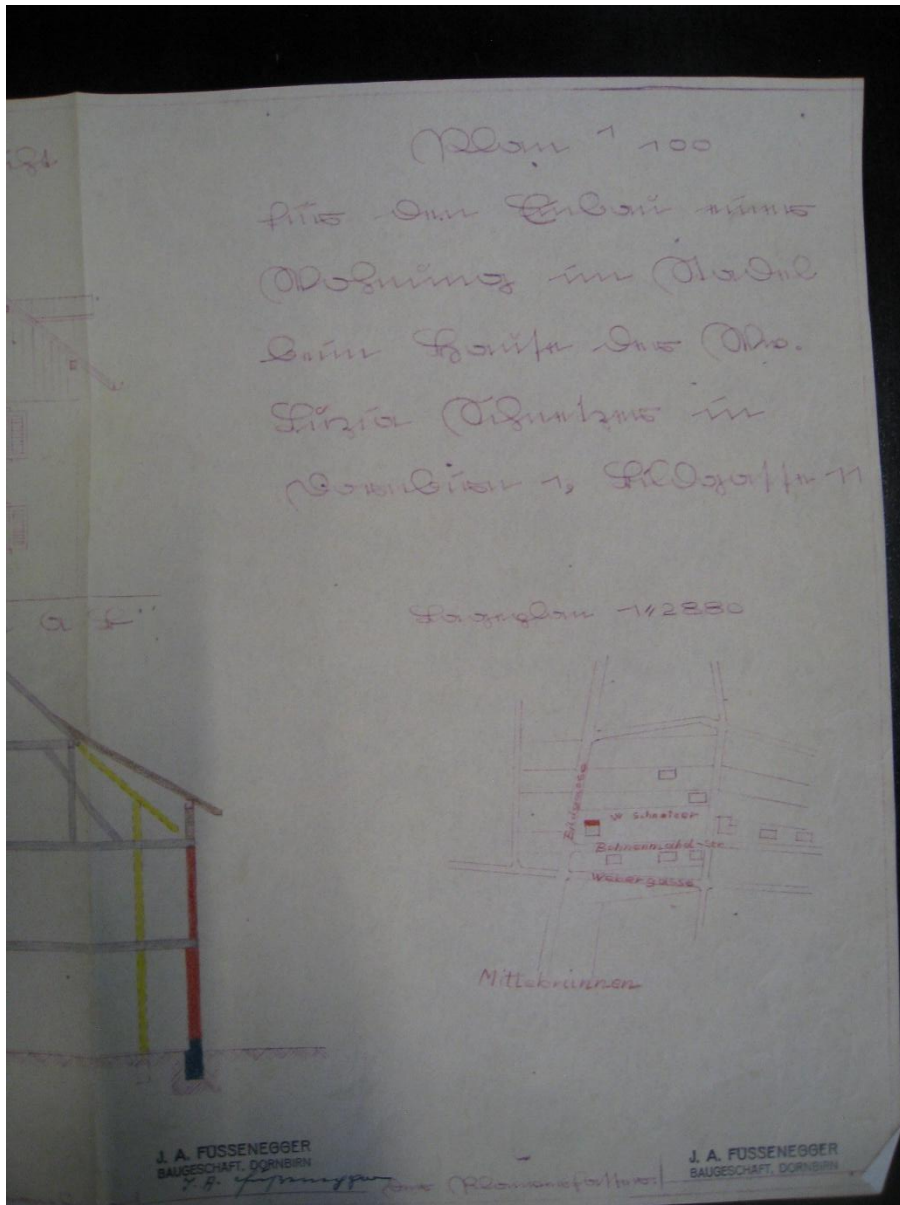 Plan 1 100
für den Einbau einer
Wohnung im Stadel
beim Hause der Ww.
Luzia Schnetzer in
Dornbirn 1, Bildgasse 11
Lageplan 1:2880
Bildgasse
Schnetzer
Bohnenmahd-str
Webergasse
Mittebrunnen
J. A. FÜSSENEGGER
BAUGESCHÄFT, DORNBIRN
J. A. Füssenegger
der Planverfasser
J. A. FÜSSENEGGER
BAUGESCHÄFT, DORNBIRN